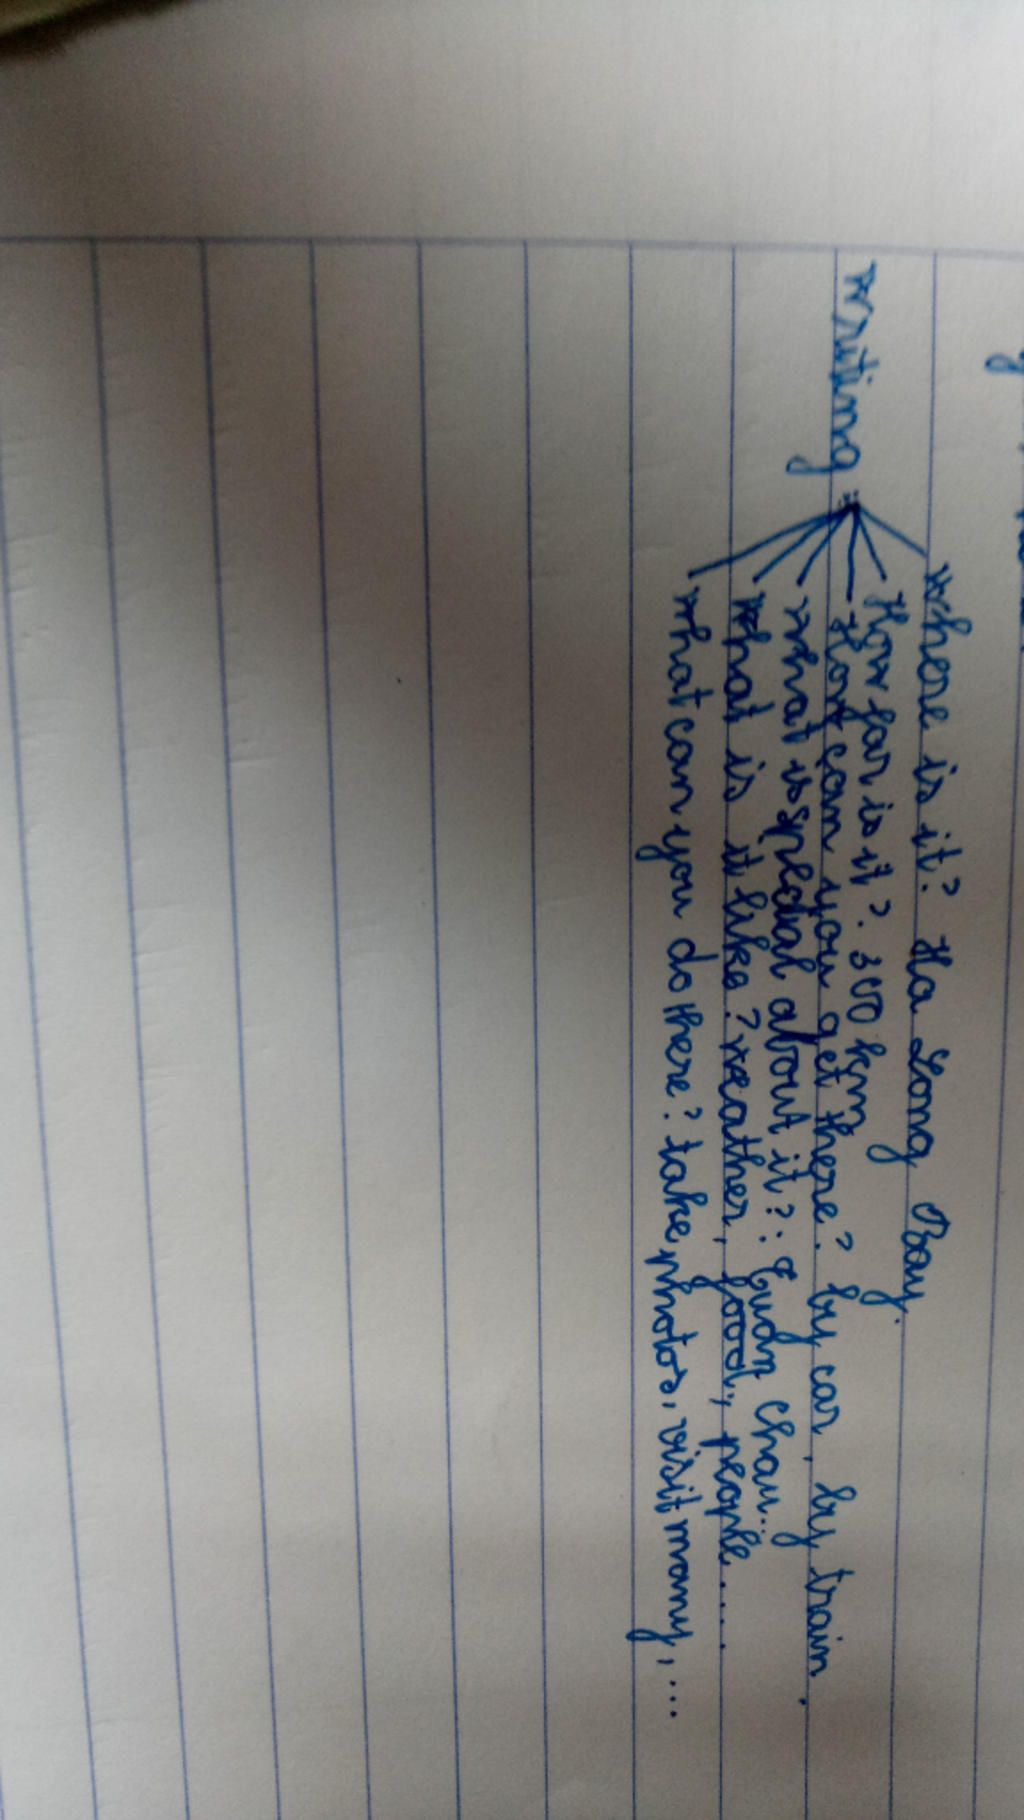 where is it? Ha Long Bay.
How far is it?. 300 km
writing : How can you get there? by car, by train.
what is special about it?: Quan chau...
what is it like? weather, food, people....
what can you do there? take photos, visit many,...